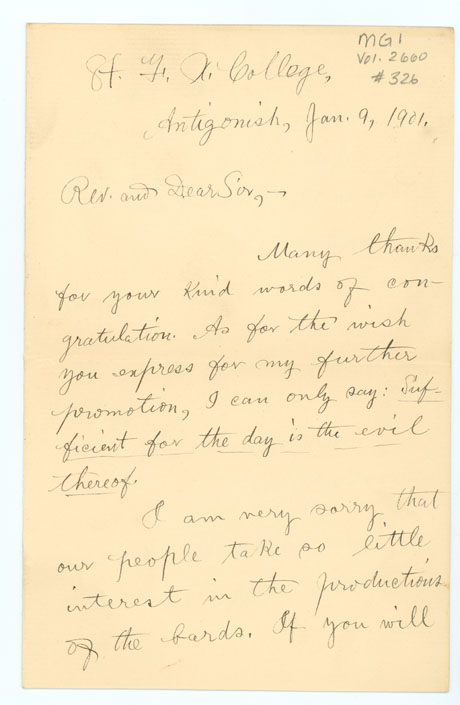 MG1
Vol. 2660
#326
St. F. X. College,
Antigonish, Jan. 9, 1901.
Rev. and Dear Sir,—
Many thanks
for your kind words of con-
gratulation. As for the wish
you express for my further
promotion, I can only say: Suf-
ficient for the day is the evil
thereof.
I am very sorry that
our people take so little
interest in the productions
of the bards. If you will